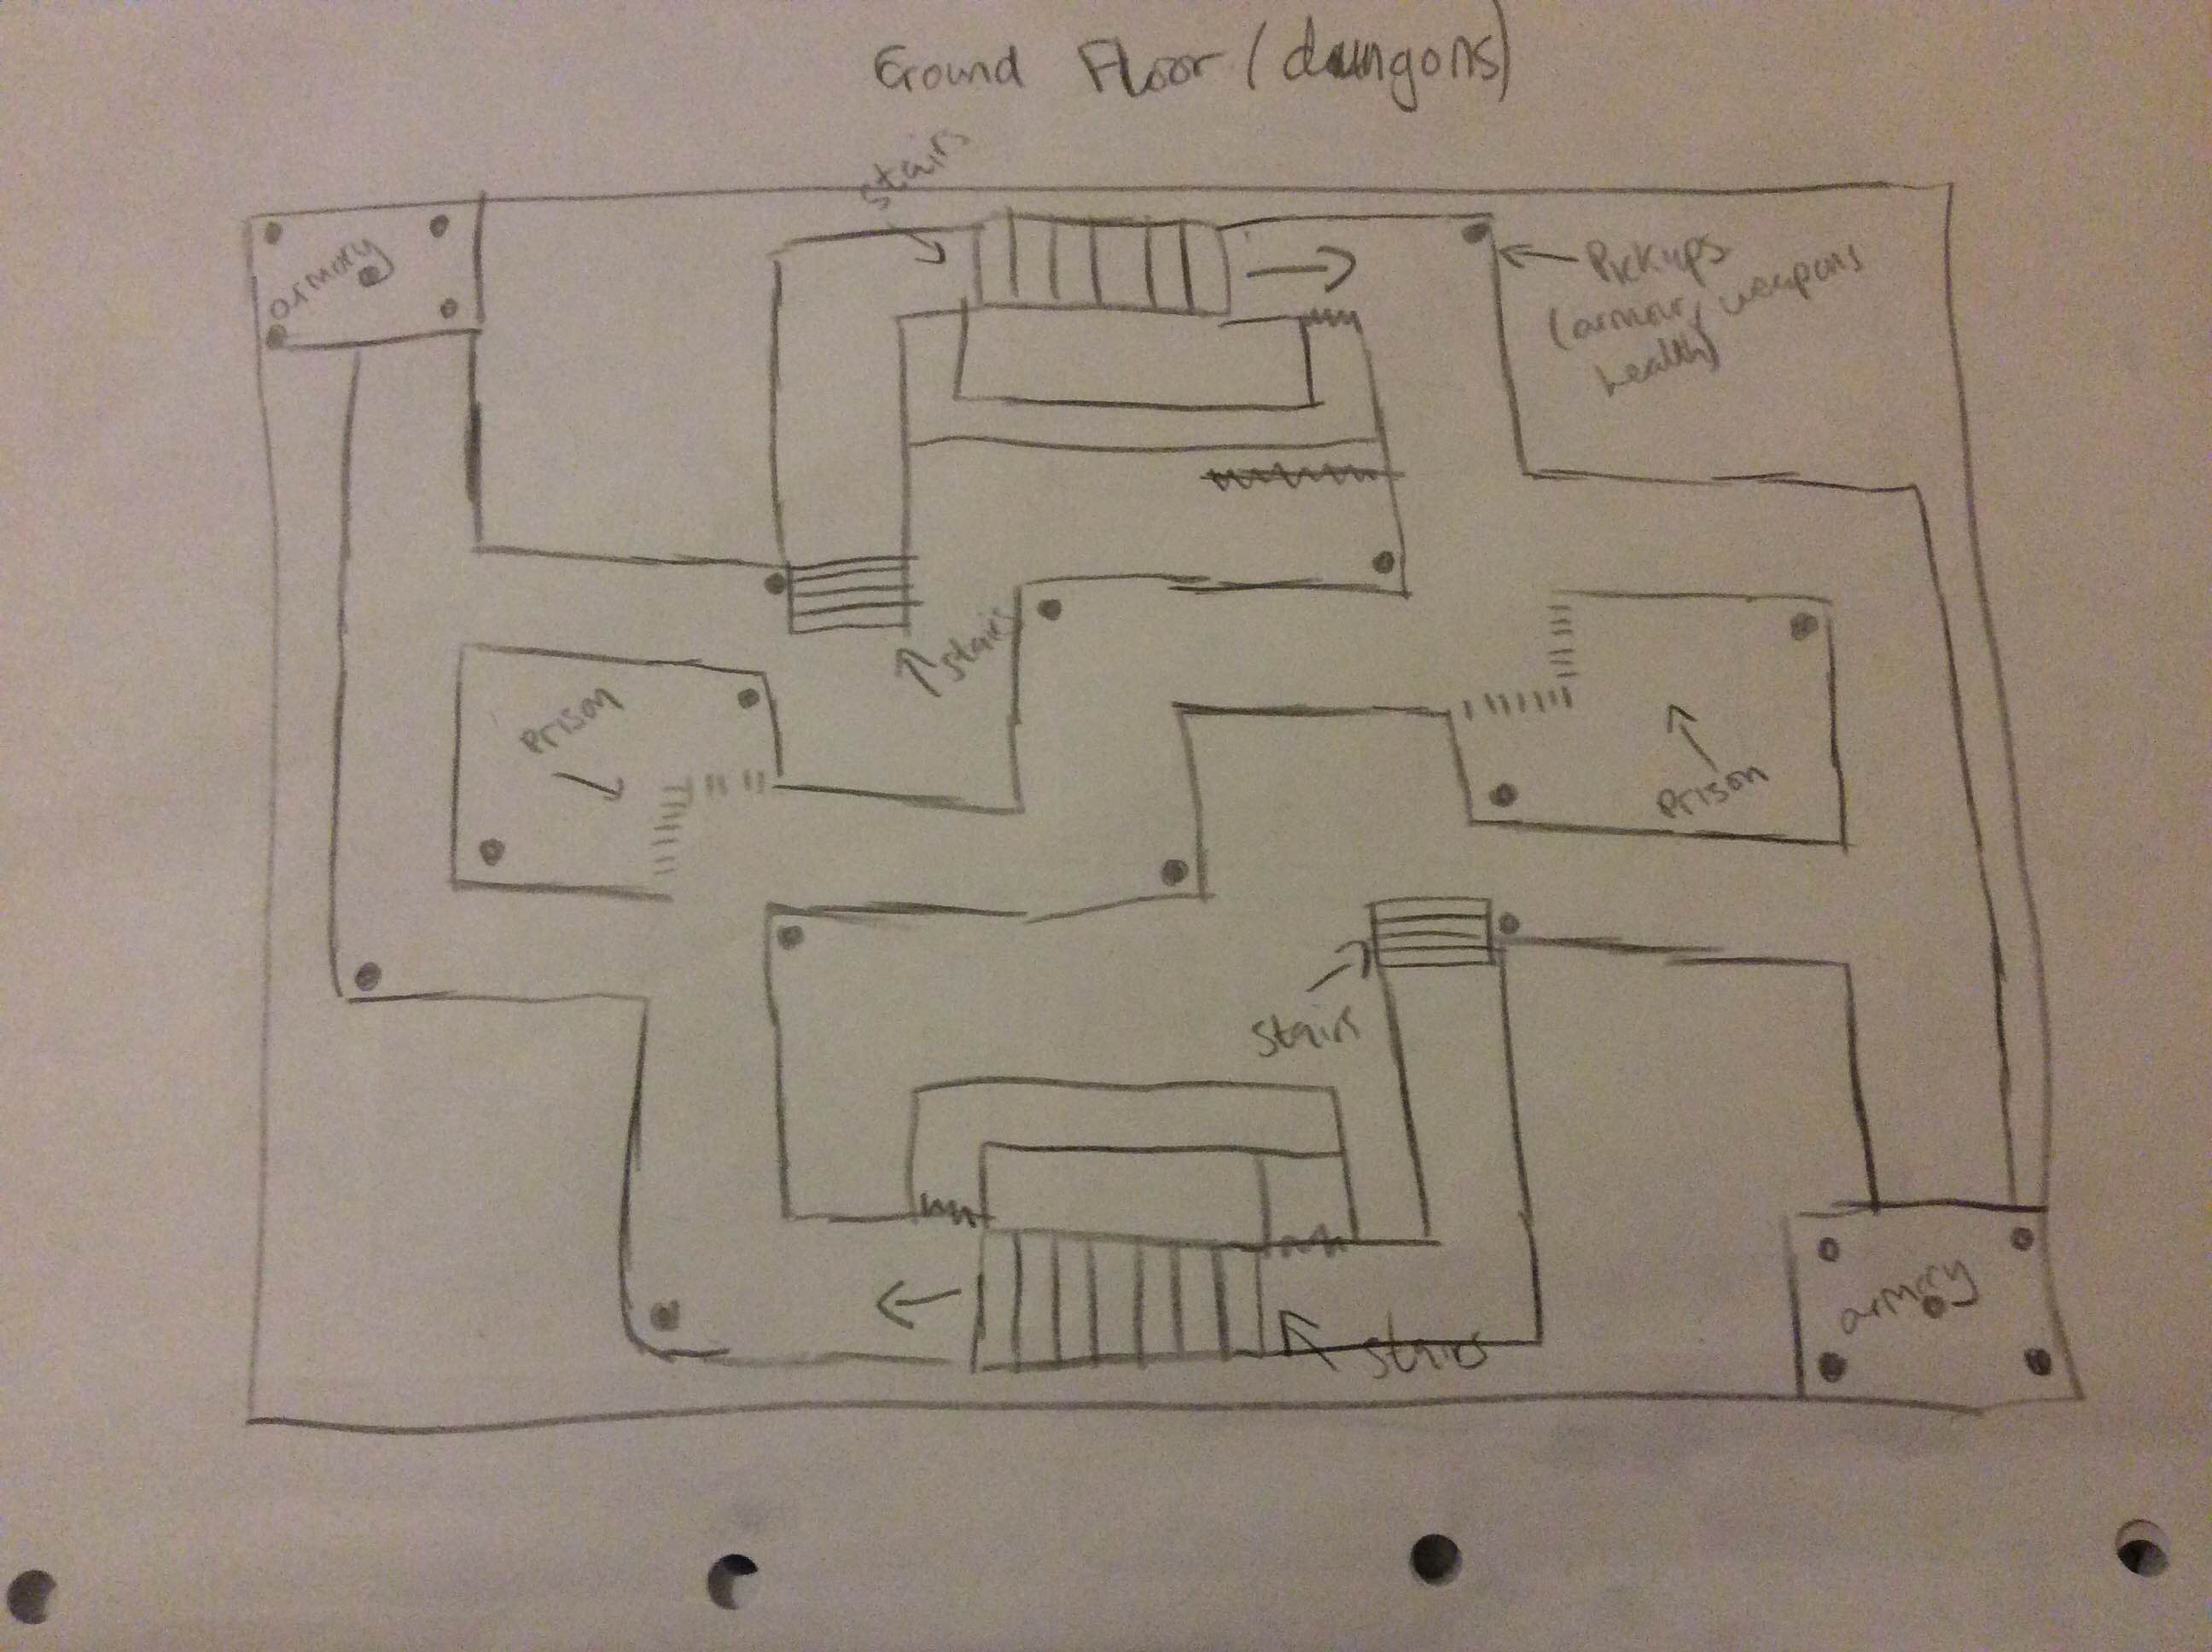 Ground Floor (dungons)
stairs
armory
Pickups
(armour, weapons
health)
stairs
Prison
Prison
stairs
armory
stairs